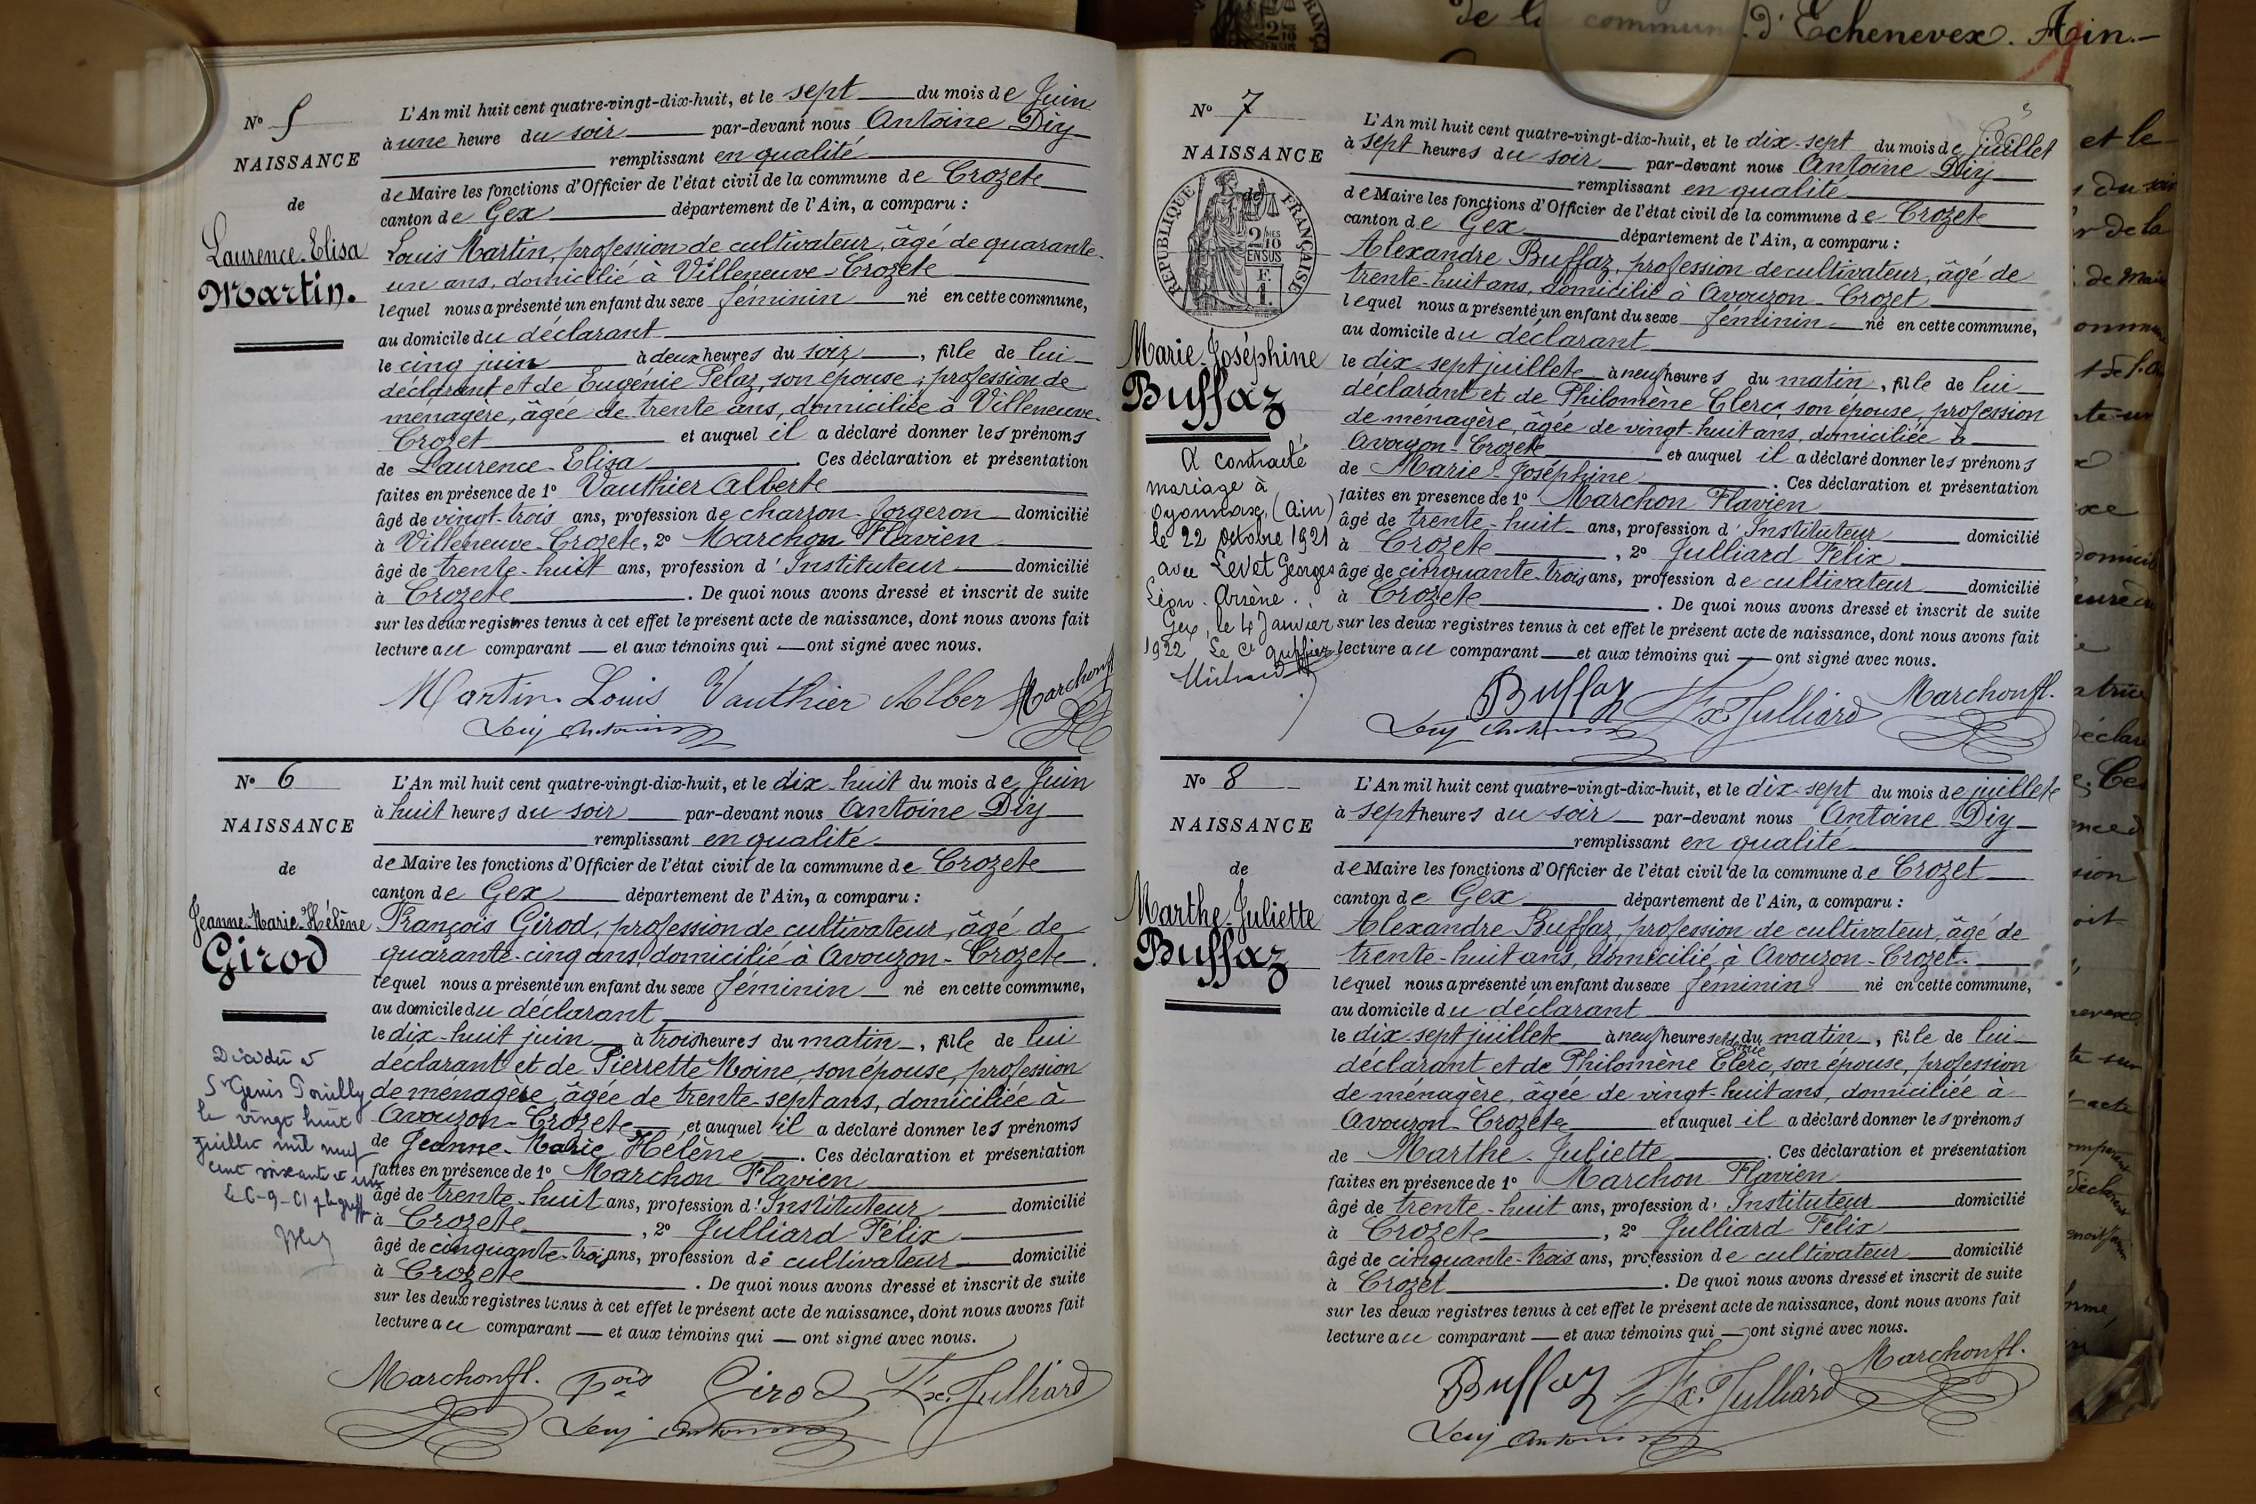 de la commune d'Echenevex. Ain.-
Nº 5
NAISSANCE
de
Laurence-Elisa
Martin.
L'An mil huit cent quatre-vingt-dix-huit, et le sept du mois de Juin
à une heure du soir par-devant nous Antoine Diy
remplissant en qualité
de Maire les fonctions d'Officier de l'état civil de la commune de Crozet
canton de Gex département de l'Ain, a comparu :
Louis Martin, profession de cultivateur, âgé de quarante-
un ans, domicilié à Villeneuve-Crozet
lequel nous a présenté un enfant du sexe féminin né en cette commune,
au domicile du déclarant
le cinq juin à deux heures du soir, fille de lui
déclarant et de Eugénie Pelaz, son épouse, profession de
ménagère, âgée de trente ans, domiciliée à Villeneuve-
Crozet et auquel il a déclaré donner les prénoms
de Laurence-Elisa. Ces déclaration et présentation
faites en présence de 1º Vauthier Albert
âgé de vingt-trois ans, profession de charron-forgeron domicilié
à Villeneuve-Crozet, 2º Marchon Flavien
âgé de trente-huit ans, profession d'Instituteur domicilié
à Crozet. De quoi nous avons dressé et inscrit de suite
sur les deux registres tenus à cet effet le présent acte de naissance, dont nous avons fait
lecture au comparant — et aux témoins qui — ont signé avec nous.
Martin Louis Vauthier Alber Marchonfl
Diy Antoine
Nº 6
NAISSANCE
de
Jeanne-Marie-Hélène
Girod
Décédée à
St Genis Pouilly
le vingt huit
juillet mil neuf
cent soixante et un
L'An mil huit cent quatre-vingt-dix-huit, et le dix-huit du mois de Juin
à huit heures du soir par-devant nous Antoine Diy
remplissant en qualité
de Maire les fonctions d'Officier de l'état civil de la commune de Crozet
canton de Gex département de l'Ain, a comparu :
François Girod, profession de cultivateur, âgé de
quarante-cinq ans, domicilié à Avouzon-Crozet.
lequel nous a présenté un enfant du sexe féminin né en cette commune,
au domicile du déclarant
le dix-huit juin à trois heures du matin, fille de lui
déclarant et de Pierrette Moine, son épouse, profession
de ménagère, âgée de trente-sept ans, domiciliée à
Avouzon-Crozet, et auquel il a déclaré donner les prénoms
de Jeanne-Marie Hélène. Ces déclaration et présentation
faites en présence de 1º Marchon Flavien
âgé de trente-huit ans, profession d'Instituteur domicilié
à Crozet, 2º Julliard Félix
âgé de cinquante-trois ans, profession de cultivateur domicilié
à Crozet. De quoi nous avons dressé et inscrit de suite
sur les deux registres tenus à cet effet le présent acte de naissance, dont nous avons fait
lecture au comparant — et aux témoins qui — ont signé avec nous.
Marchonfl. Fçois Girod Fx. Julliard
Diy Antoine
Nº 7
NAISSANCE
de
RÉPUBLIQUE FRANÇAISE
2/10 MES
EN SUS
F.
1.
Marie-Joséphine
Buffaz
A contracté
mariage à
Oyonnax, (Ain)
le 22 octobre 1921
avec Levet Georges
Léon. Arsène.
Gex, le 4 Janvier
1922 Le Cs greffier
L'An mil huit cent quatre-vingt-dix-huit, et le dix-sept du mois de juillet
à sept heures du soir par-devant nous Antoine Diy
remplissant en qualité
de Maire les fonctions d'Officier de l'état civil de la commune de Crozet
canton de Gex département de l'Ain, a comparu :
Alexandre Buffaz, profession de cultivateur, âgé de
trente-huit ans, domicilié à Avouzon-Crozet
lequel nous a présenté un enfant du sexe féminin né en cette commune,
au domicile du déclarant
le dix-sept juillet à neuf heures du matin, fille de lui
déclarant et de Philomène Clerc, son épouse, profession
de ménagère, âgée de vingt-huit ans, domiciliée à
Avouzon-Crozet et auquel il a déclaré donner les prénoms
de Marie-Joséphine. Ces déclaration et présentation
faites en présence de 1º Marchon Flavien
âgé de trente-huit ans, profession d'Instituteur domicilié
à Crozet, 2º Julliard Félix
âgé de cinquante-trois ans, profession de cultivateur domicilié
à Crozet. De quoi nous avons dressé et inscrit de suite
sur les deux registres tenus à cet effet le présent acte de naissance, dont nous avons fait
lecture au comparant — et aux témoins qui — ont signé avec nous.
Buffaz Fx. Julliard Marchonfl.
Diy Antoine
Nº 8
NAISSANCE
de
Marthe-Juliette
Buffaz
L'An mil huit cent quatre-vingt-dix-huit, et le dix-sept du mois de juillet
à sept heures du soir par-devant nous Antoine Diy
remplissant en qualité
de Maire les fonctions d'Officier de l'état civil de la commune de Crozet
canton de Gex département de l'Ain, a comparu :
Alexandre Buffaz, profession de cultivateur, âgé de
trente-huit ans, domicilié à Avouzon-Crozet.
lequel nous a présenté un enfant du sexe féminin né en cette commune,
au domicile du déclarant
le dix-sept juillet à neuf heures et demie du matin, fille de lui
déclarant et de Philomène Clerc, son épouse, profession
de ménagère, âgée de vingt-huit ans, domiciliée à
Avouzon-Crozet et auquel il a déclaré donner les prénoms
de Marthe-Juliette. Ces déclaration et présentation
faites en présence de 1º Marchon Flavien
âgé de trente-huit ans, profession d'Instituteur domicilié
à Crozet, 2º Julliard Félix
âgé de cinquante-trois ans, profession de cultivateur domicilié
à Crozet. De quoi nous avons dressé et inscrit de suite
sur les deux registres tenus à cet effet le présent acte de naissance, dont nous avons fait
lecture au comparant — et aux témoins qui — ont signé avec nous.
Buffaz Fx. Julliard Marchonfl.
Diy Antoine